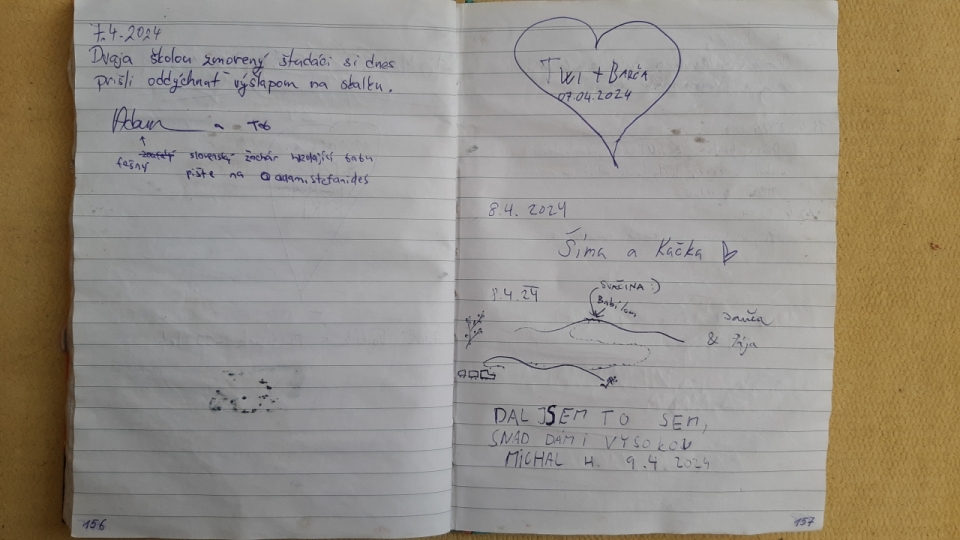 7.4.2024
Dvaja školou zmorený študáci si dnes
prišli oddýchnuť výšlapom na skalku.
Adam a Tob
fešný slovenský žochár hledající babu
pište na @adamistefanides
156
+ Barča
07.04.2024
8.4. 2024
Šíma a Kačka
8.4.24
SVAČINA :)
Babilon
&
DAL JSEM TO SEM,
SNAD DÁM I VYSOKOU
MICHAL H. 9.4.2024
157